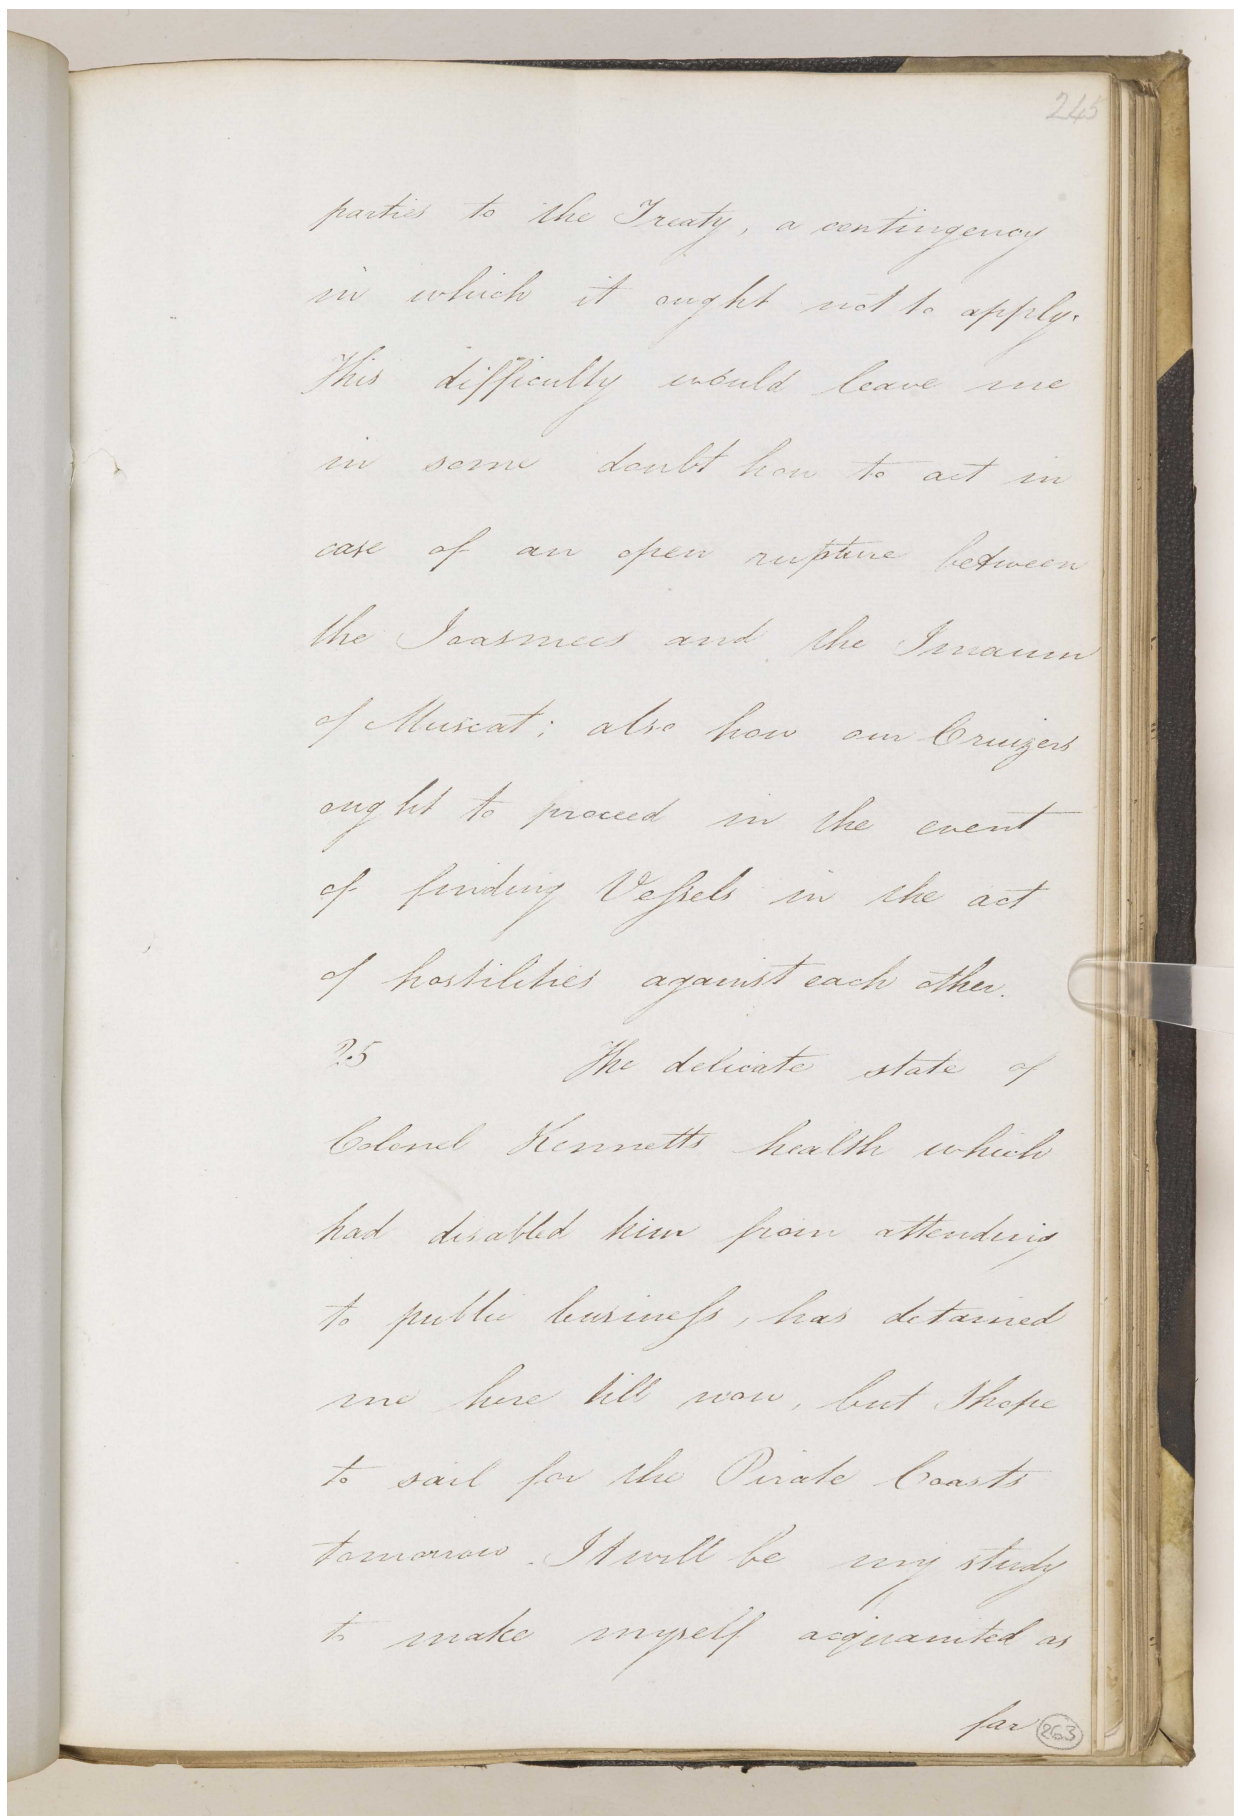 245
parties to the Treaty, a contingency
in which it ought not to apply.
This difficulty would leave me
in some doubt how to act in
case of an open rupture between
the Joasmees and the Imaum
of Muscat; also how our Cruizers
ought to proceed in the event
of finding Veſsels in the act
of hostilities against each other.
25 The delicate state of
Colonel Kennetts health which
had disabled him from attending
to public buisineſs, has detained
me here till now, but I hope
to sail for the Pirate Coasts
tomorrow. It will be my study
to make myself acquainted as
far
263